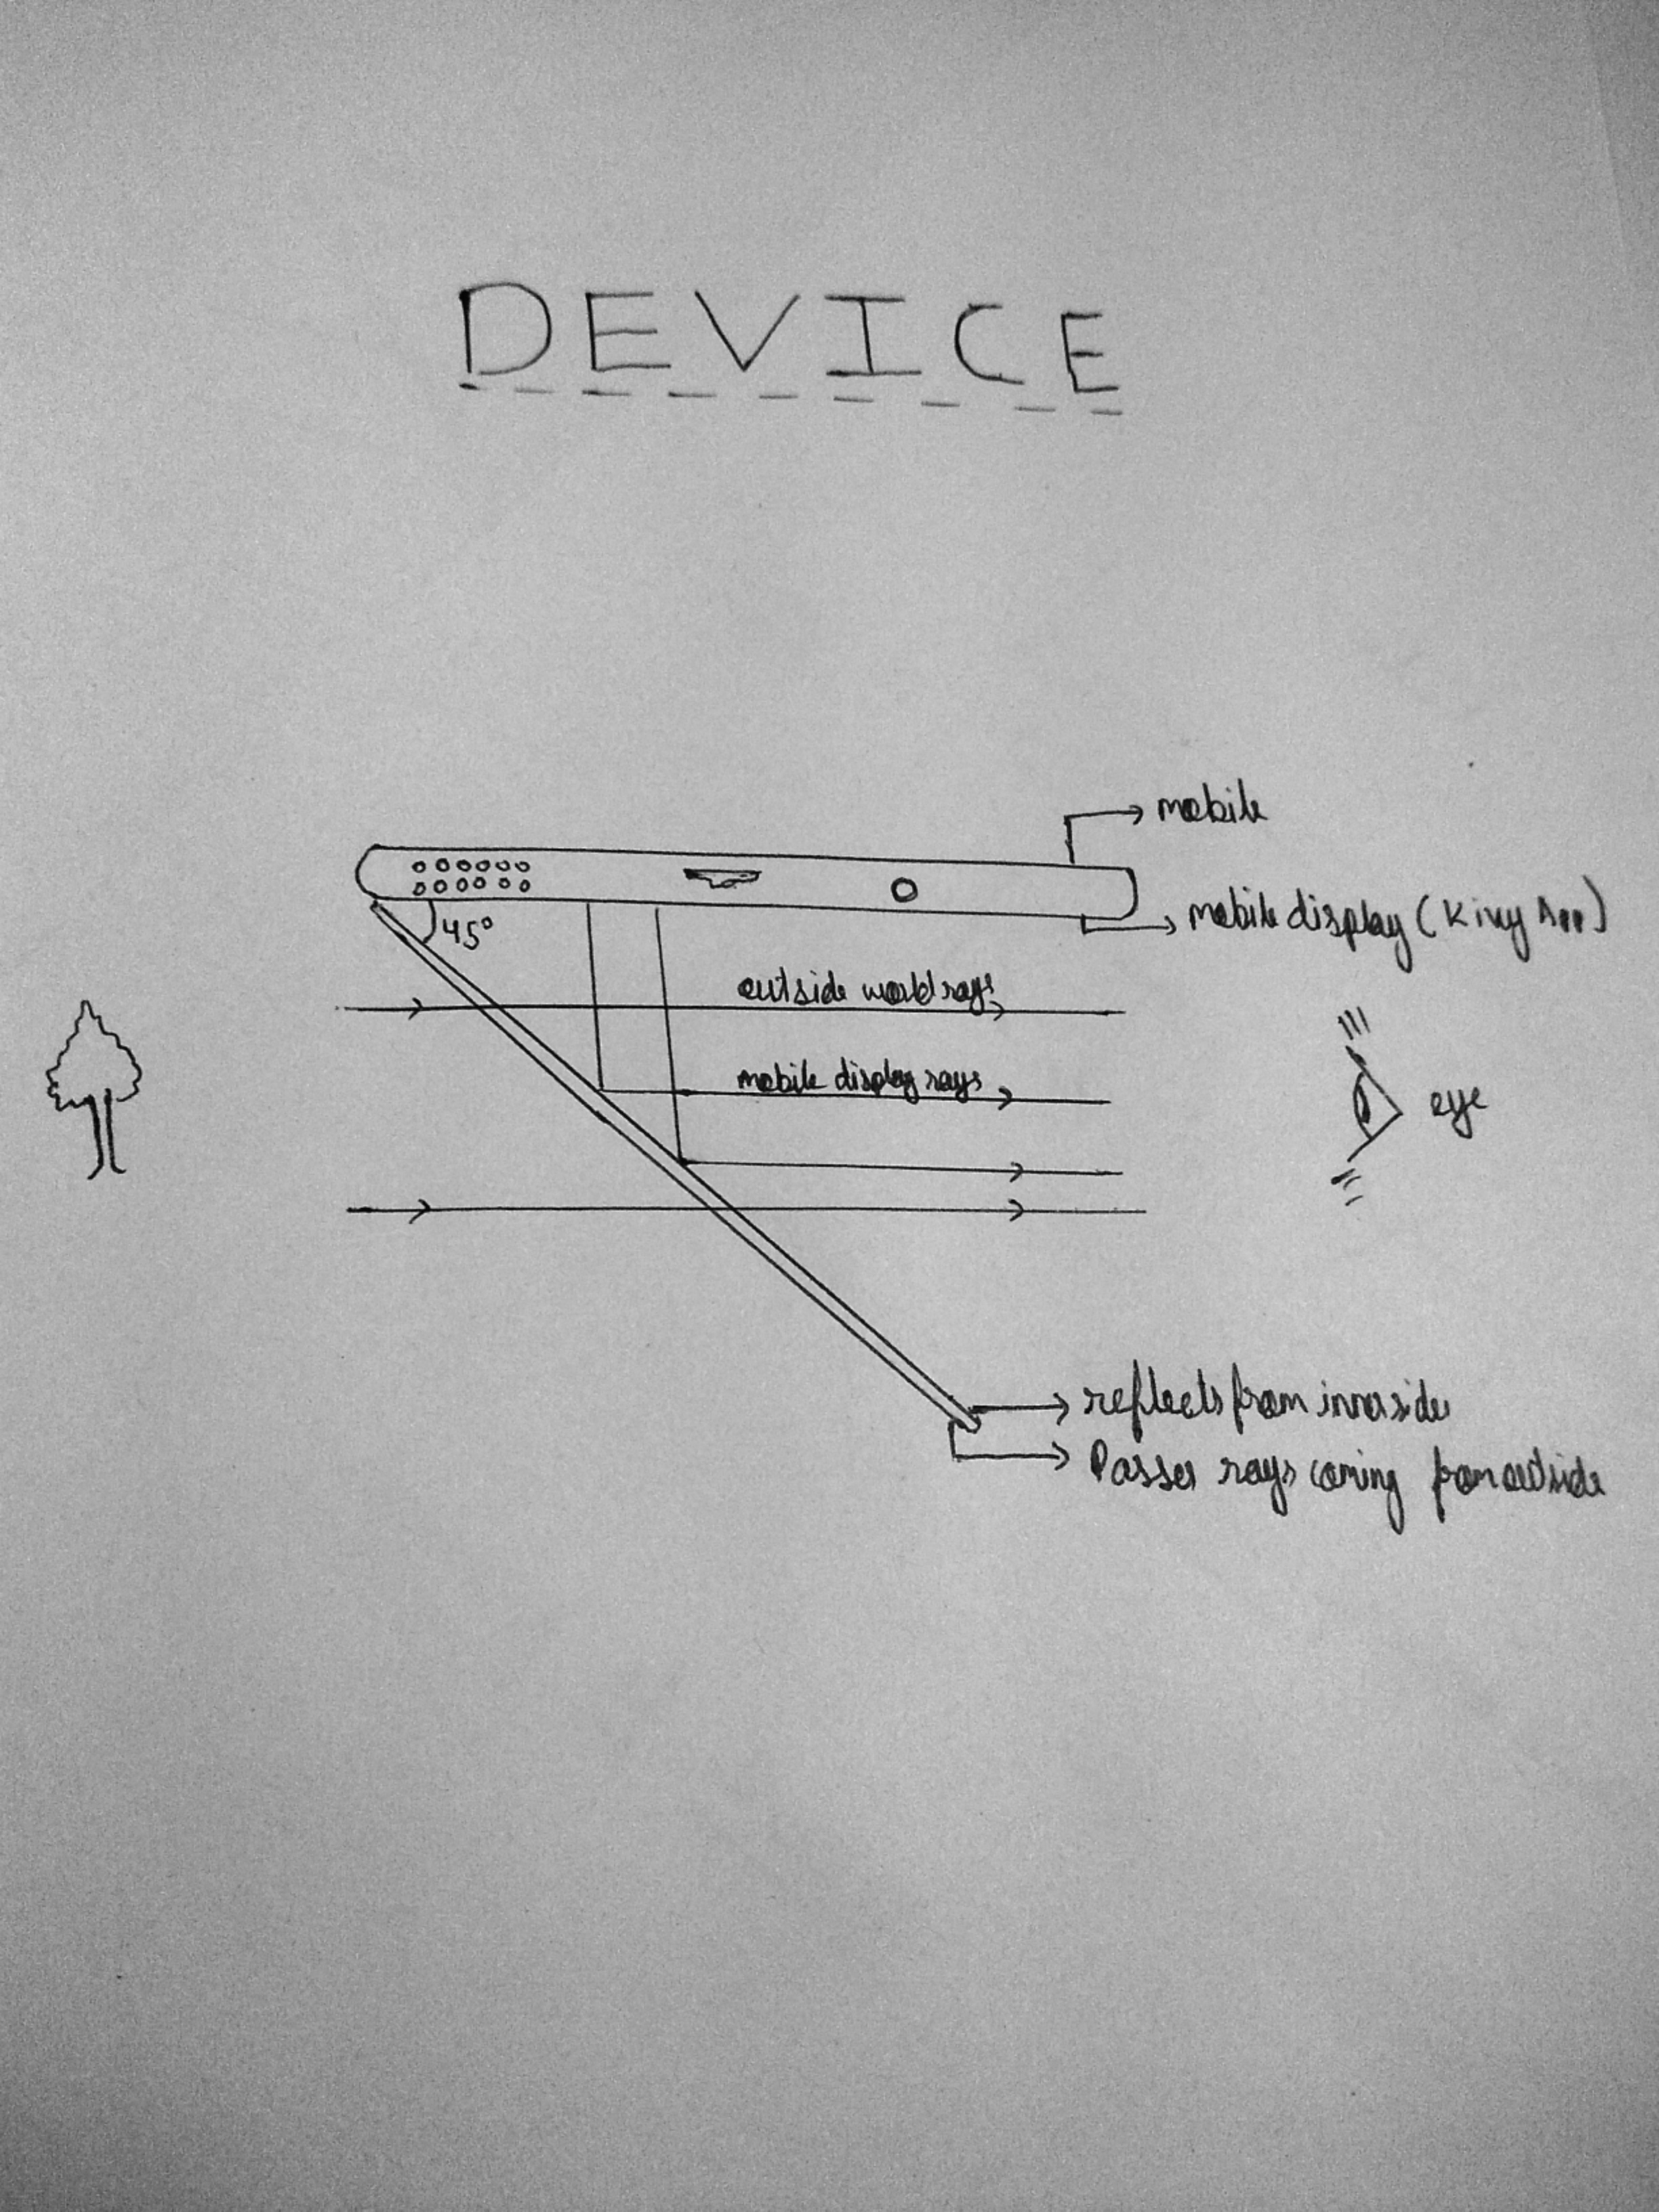 DEVICE
mobile
mobile display (Kivy App)
45°
outside world rays
mobile display rays
eye
reflects from inner side
Passes rays coming from outside